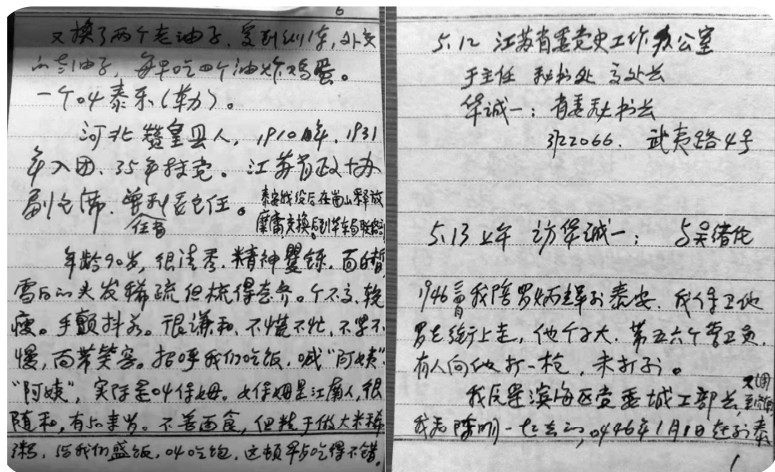 6
又换了两个老油子，受到训练，外交
的老油子，每早吃四个油炸鸡蛋。
一个叫泰乐（华办）。
河北赞皇县人，1910年，1931
年入团，35年转党。江苏省政协
副主席
泰安战役后在 山释放
年龄90岁，很清秀，精神矍铄，面白皙
雪白的头发稀疏但梳得整齐。个不高，较
瘦。手颤抖着。很谦和，不慌不忙，不紧不
慢，面带笑容。招呼我们吃饭，喊“阿姨”
“阿姨”，实际是叫保姆。女保姆是江南人，很
随和，有 岁。不善面食，但善于做大米稀
粥，给我们盛饭，叫吃饱，这顿早点吃得不错。
5.12 江苏省委党史工作办公室
于主任 秘书处 处长
华诚一：省委秘书长
3722066. 武夷路4号
5.13 上午 访华诚一： 与吴绪纯
1946 我陪罗炳辉到泰安，我保卫他
罗在街上走，他个子大，带五六个警卫员，
有人向他打一枪，未打到。
我后是滨海区党委城工部长，
我和陈明一起去的，46年1月1日赶到泰
1